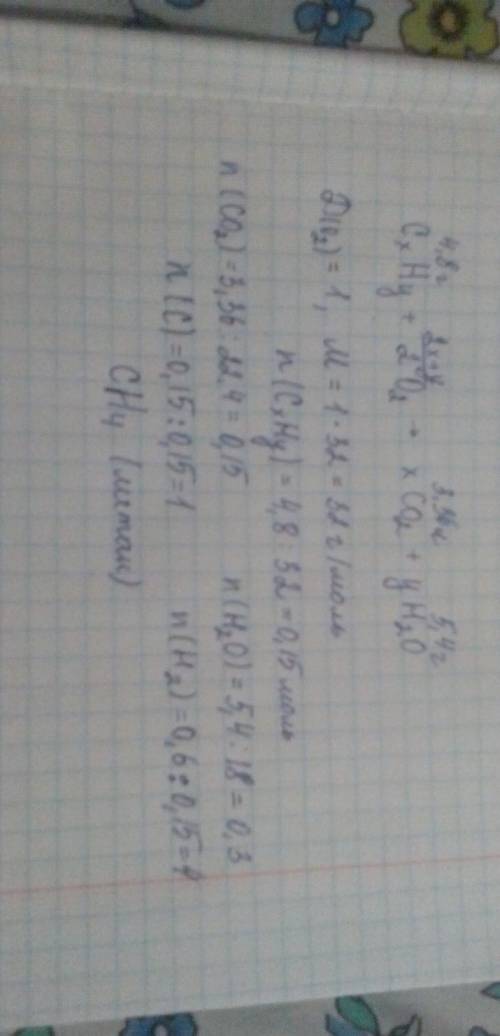 4,8 г 3,36 л 5,4 г
CxHy + O2 → xCO2 + yH2O
D(O2) = 1, M = 1·32 = 32 г/моль
n(CxHy) = 4,8 : 32 = 0,15 моль
n(CO2) = 3,36 : 22,4 = 0,15 n(H2O) = 5,4 : 18 = 0,3
n(C) = 0,15 : 0,15 = 1 n(H2) = 0,6 : 0,15 = 4
CH4 (метан)